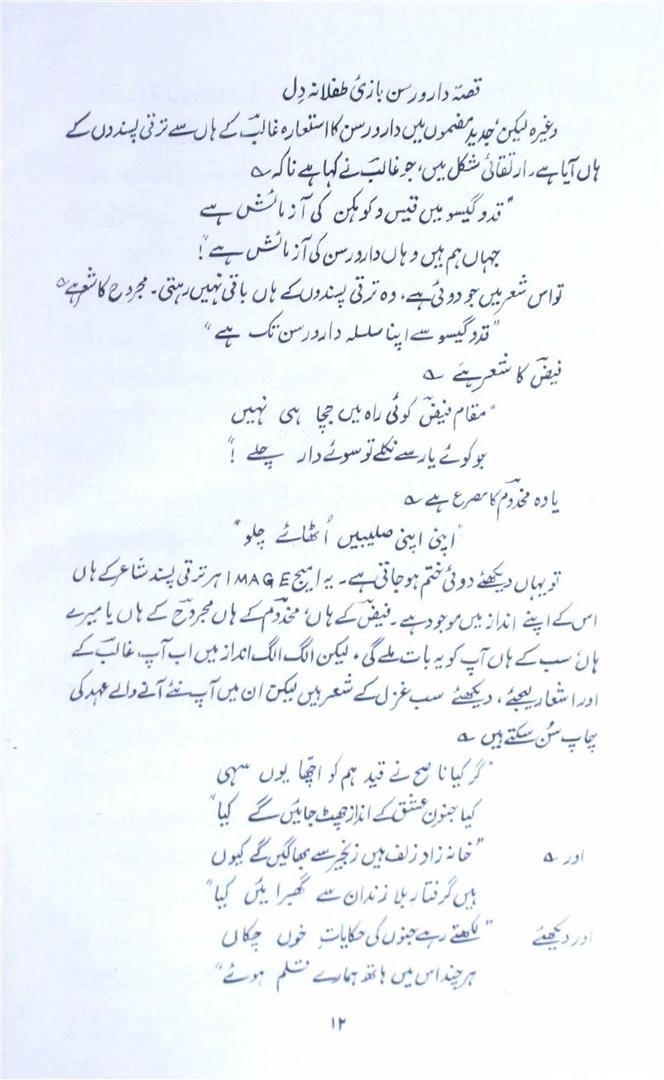 قصّہ دار و رسن بازیٔ طفلانہ دِل
وغیرہ لیکن، جدید مضموں میں دار و رسن کا استعارہ غالبؔ کے ہاں سے ترقی پسندوں کے
ہاں آیا ہے۔ ارتقائی شکل میں، جو غالبؔ نے کہا ہے نا کہ ؎
"قد و گیسو میں قیس و کوہکن کی آزمائش ہے
جہاں ہم ہیں وہاں دار و رسن کی آزمائش ہے"!
تو اس شعر میں جو دوئی ہے، وہ ترقی پسندوں کے ہاں باقی نہیں رہتی۔ مجروحؔ کا شعر ہے ؎
"قد و گیسو سے اپنا سلسلہ دار و رسن تک ہے"
فیضؔ کا شعر ہے ؎
"مقام فیضؔ کوئی راہ میں جچا ہی نہیں
جو کوئے یار سے نکلے تو سوئے دار چلے"!
یا وہ مخدومؔ کا مصرع ہے ؎
"اپنی اپنی صلیبیں اُٹھائے چلو"
تو یہاں دیکھئے دوئی ختم ہو جاتی ہے۔ یہ امیج IMAGE ہر ترقی پسند شاعر کے ہاں
اس کے اپنے انداز میں موجود ہے۔ فیضؔ کے ہاں، مخدومؔ کے ہاں مجروحؔ کے ہاں یا میرے
ہاں سب کے ہاں آپ کو یہ بات ملے گی، لیکن الگ الگ انداز میں اب آپ غالبؔ کے
اور اشعار لیجئے، دیکھئے سب غزل کے شعر ہیں لیکن ان میں آپ نئے آنے والے عہد کی
چاپ سُن سکتے ہیں ؎
"گر کیا ناصح نے قید ہم کو اچھّا یوں سہی
کیا جنونِ عشق کے انداز چھٹ جائیں گے کیا"
اور ؎ "خانہ زاد زلف ہیں زنجیر سے بھاگیں گے کیوں
ہیں گرفتارِ بلا زندان سے گھبرائیں کیا"
اور دیکھئے "لکھتے رہے جنوں کی حکایاتِ خوں چکاں
ہر چند اس میں ہاتھ ہمارے قلم ہوئے"
۱۲